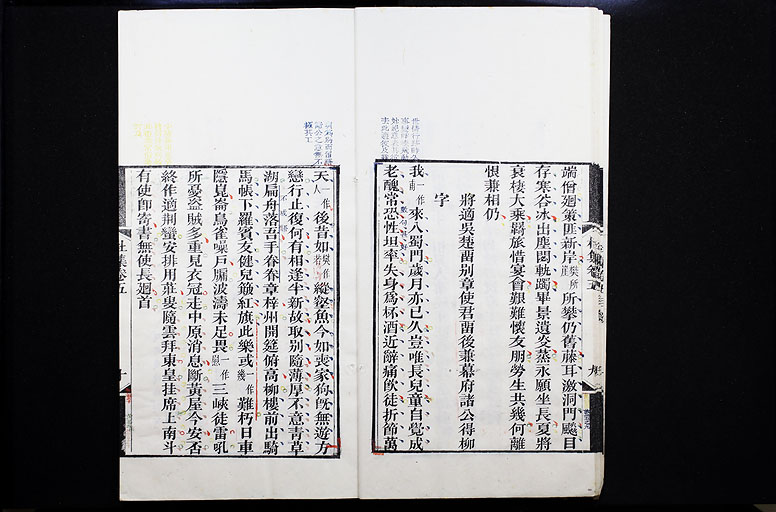 端僧廻策匪新岸所攀仍舊藤耳激洞門飈目
存寒谷冰出塵閟軌躅畢景遺炎蒸永願坐長夏將
衰棲大乘羈旅惜宴會艱難懷友朋勞生共幾何離
恨兼相仍
將適吳楚留別章使君留後兼幕府諸公得柳
字
我一作南來入蜀門歲月亦已久豈唯長兒童自覺成
老醜常恐性坦率失身為杯酒近辭痛飲徒折節萬
夫一作人後昔如樊作若縱壑魚今如喪家狗既無遊方
戀行止復何有相逢半新故取別隨薄厚不意青草
湖扁舟落吾手眷眷章梓州開筵俯高柳樓前出騎
馬帳下羅賓友健兒簸紅旗此樂或一作幾難朽日車
隱崑崙鳥雀噪戶牖波濤未足畏一作慰三峽徒雷吼
所憂盜賊多重見衣冠走中原消息斷黃屋今安否
終作適荊蠻安排用莊叟隨雲拜東皇挂席上南斗
有使卽寄書無使長廻首
杜集卷五